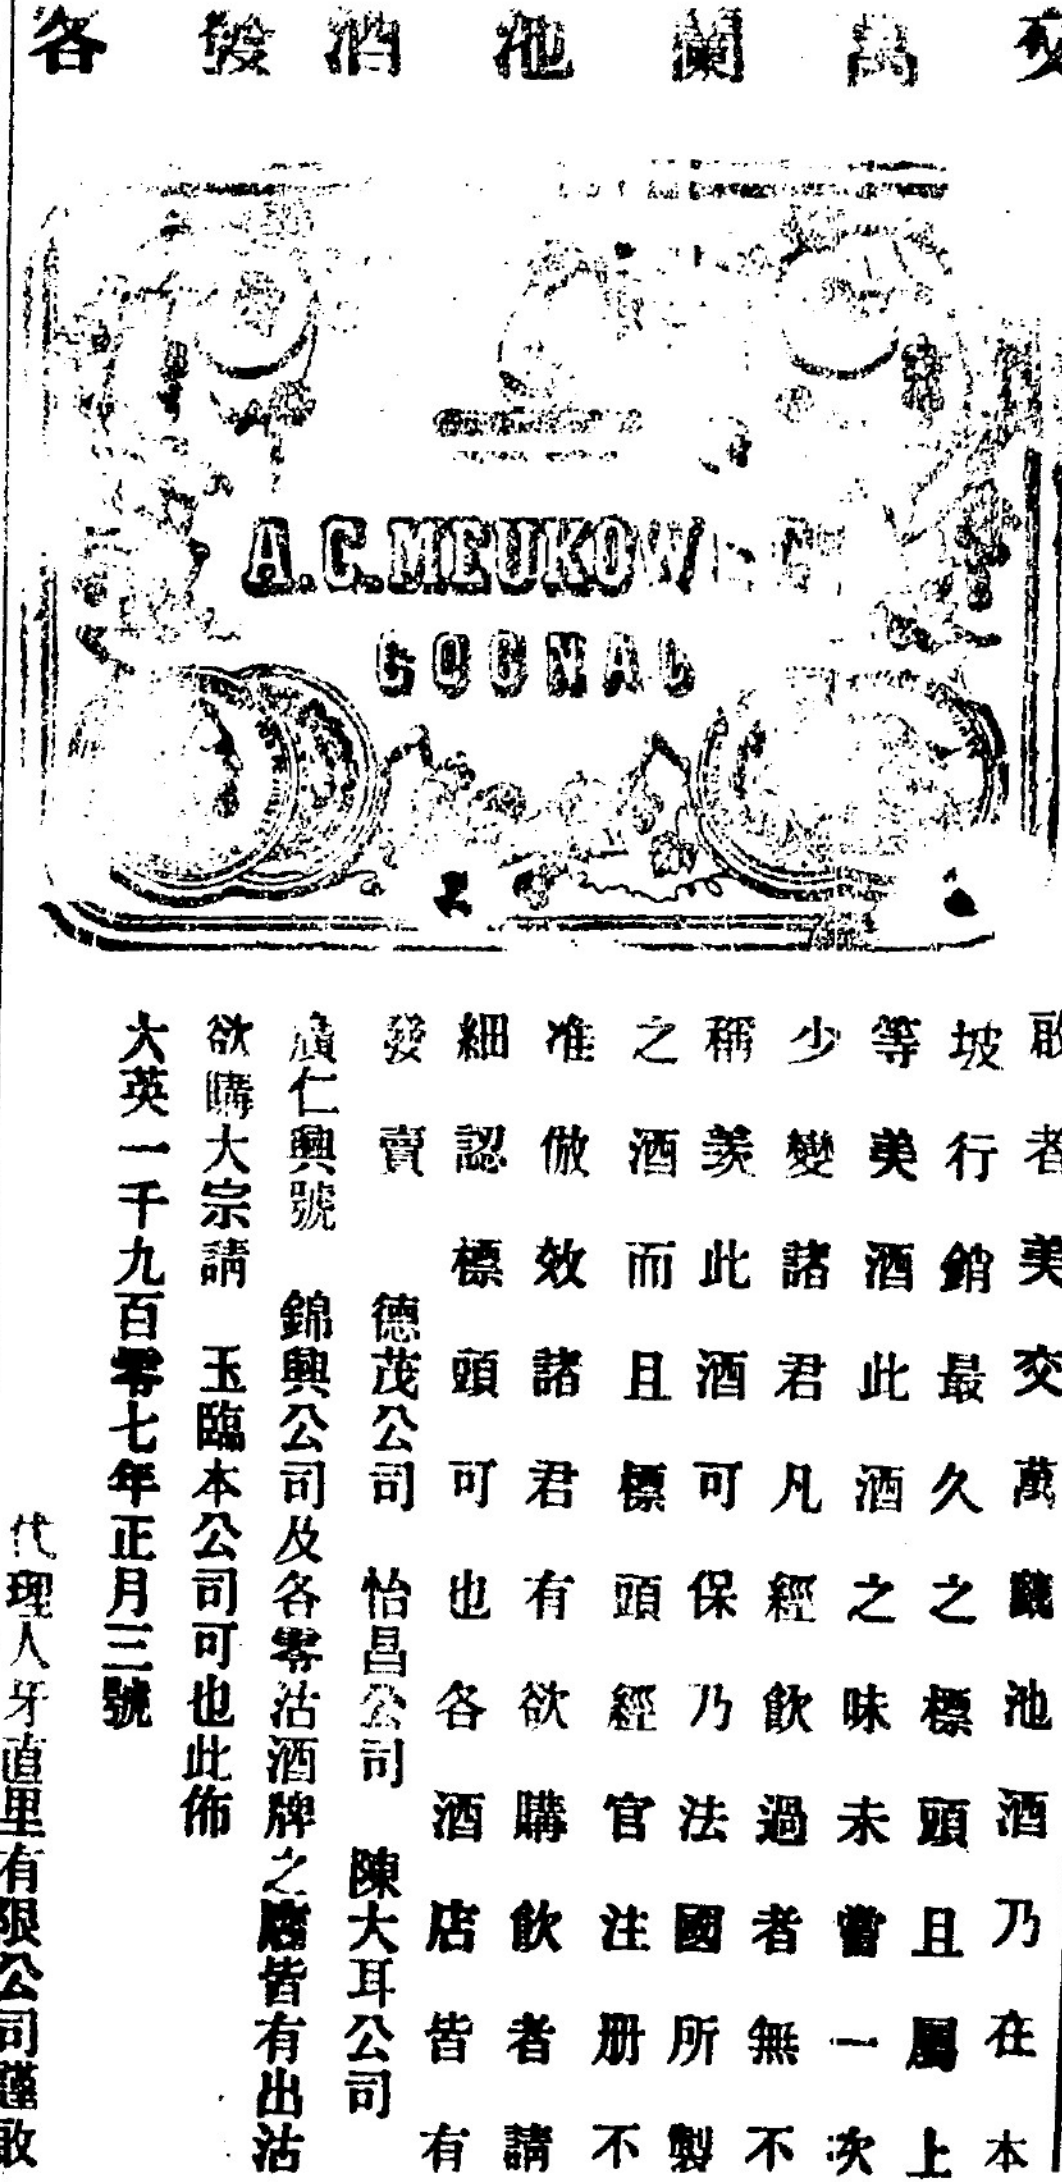 交萬蘭池酒發客
A.C.MEUKOW
COGNAC
啟者美交萬蘭池酒乃在本
坡行銷最久之標頭且屬上
等美酒此酒之味未嘗一次
少變諸君凡經飲過者無不
稱羨此酒可保乃法國所製
之酒而且標頭經官注册不
准倣效諸君有欲購飲者請
細認標頭可也各酒店皆有
發賣 德茂公司 怡昌公司 陳大耳公司
廣仁興號 錦興公司及各零沽酒牌之店皆有出沽
欲購大宗請 玉臨本公司可也此佈
大英一千九百零七年正月三號
代理人牙直里有限公司謹啟